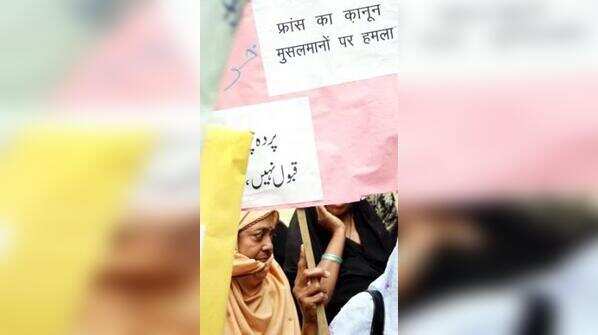 फ्रांस का क़ानून
मुसलमानों पर हमला
پردہ
قبول نہیں